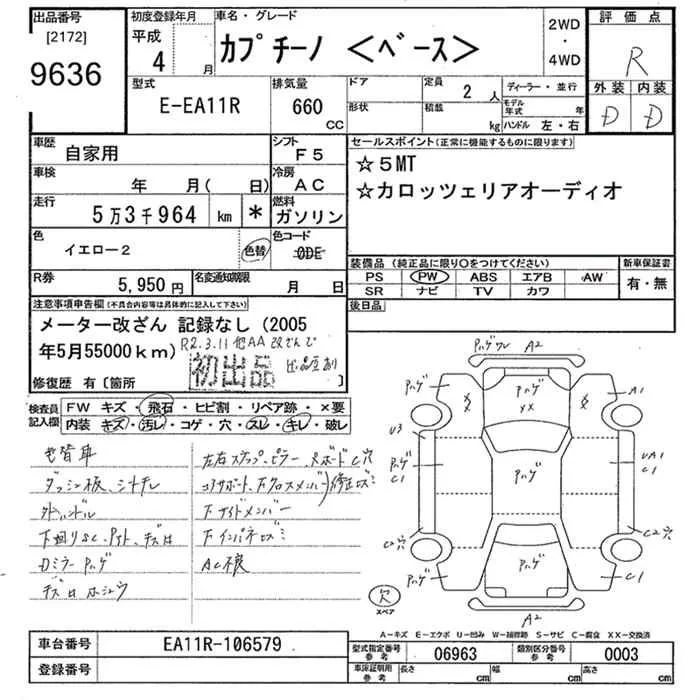 出品番号
[2172]
9636
初度登録年月
平成
4 月
車名・グレード
カプチーノ <ベース>
2WD
・
4WD
評価点
R
外装 内装
D D
型式
E-EA11R
排気量
660
CC
ドア
形状
定員
2 人
積載
kg
ディーラー・並行
モデル年式 年
ハンドル 左・右
車歴
自家用
シフト
F5
車検
年 月( 日)
冷房
AC
走行
5万3千964 km *
燃料
ガソリン
色
イエロー2
色替
色コード
0DE
R券
5,950円
名変通知期限
月 日
セールスポイント(正常に機能するものに限ります)
☆5MT
☆カロッツェリアオーディオ
装備品 (純正品に限り○をつけてください)
PS PW ABS エアB AW
SR ナビ TV カワ
新車保証書
有・無
後日品
注意事項申告欄(不具合内容等は具体的に記入して下さい)
メーター改ざん 記録なし (2005
年5月55000km)
R2.3.11 他AA 改ざんで
出品歴あり
初出品
修復歴 有〔箇所 〕
検査員
記入欄
FW キズ・飛石・ヒビ割・リペア跡・×要
内装・キズ・汚レ・コゲ・穴・スレ・キレ・破レ
色替車
ダッシュ板、シートキレ
外ハンドル
下回りSC、
Dミラー Pハゲ
左右ステップ、ピラー、
コアサポート、
下サイドメンバー
下インパネ
AC不良
Pハゲ ワレ A2
Pハゲ
Pハゲ
XX
Pハゲ
A1
U3
Pハゲ
C1
Pハゲ
UA1
C1
C2穴
C2穴
Pハゲ
Pハゲ
C1
A2
R
スペア
A－キズ E－エクボ U－凹み W－補修跡 S－サビ C－腐食 XX－交換済
車台番号
EA11R-106579
登録番号
型式指定番号
参考
06963
類別区分番号
参考
0003
車庫証明用
参考
長さ cm
幅 cm
高さ cm